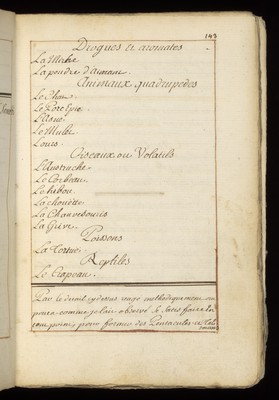 143
Drogues et aromates
La Mirhe
La poudre d'aimant
Animaux quadrupedes
Le Chat.
Le Porc Epic.
L'Asne
Le Mulet
L'ours.
Oiseaux ou Volatils
L'Austruche.
Le Corbeau.
Le hibou.
La chouëtte.
La Chauvesouris
La Grive.
Poissons
La Tortue.
Reptiles
Le Crapeau.
Par le detail cydessus rangé methodiquement on
poura comme je l'ai observé
pour former des Pentacules et Tal
ismans